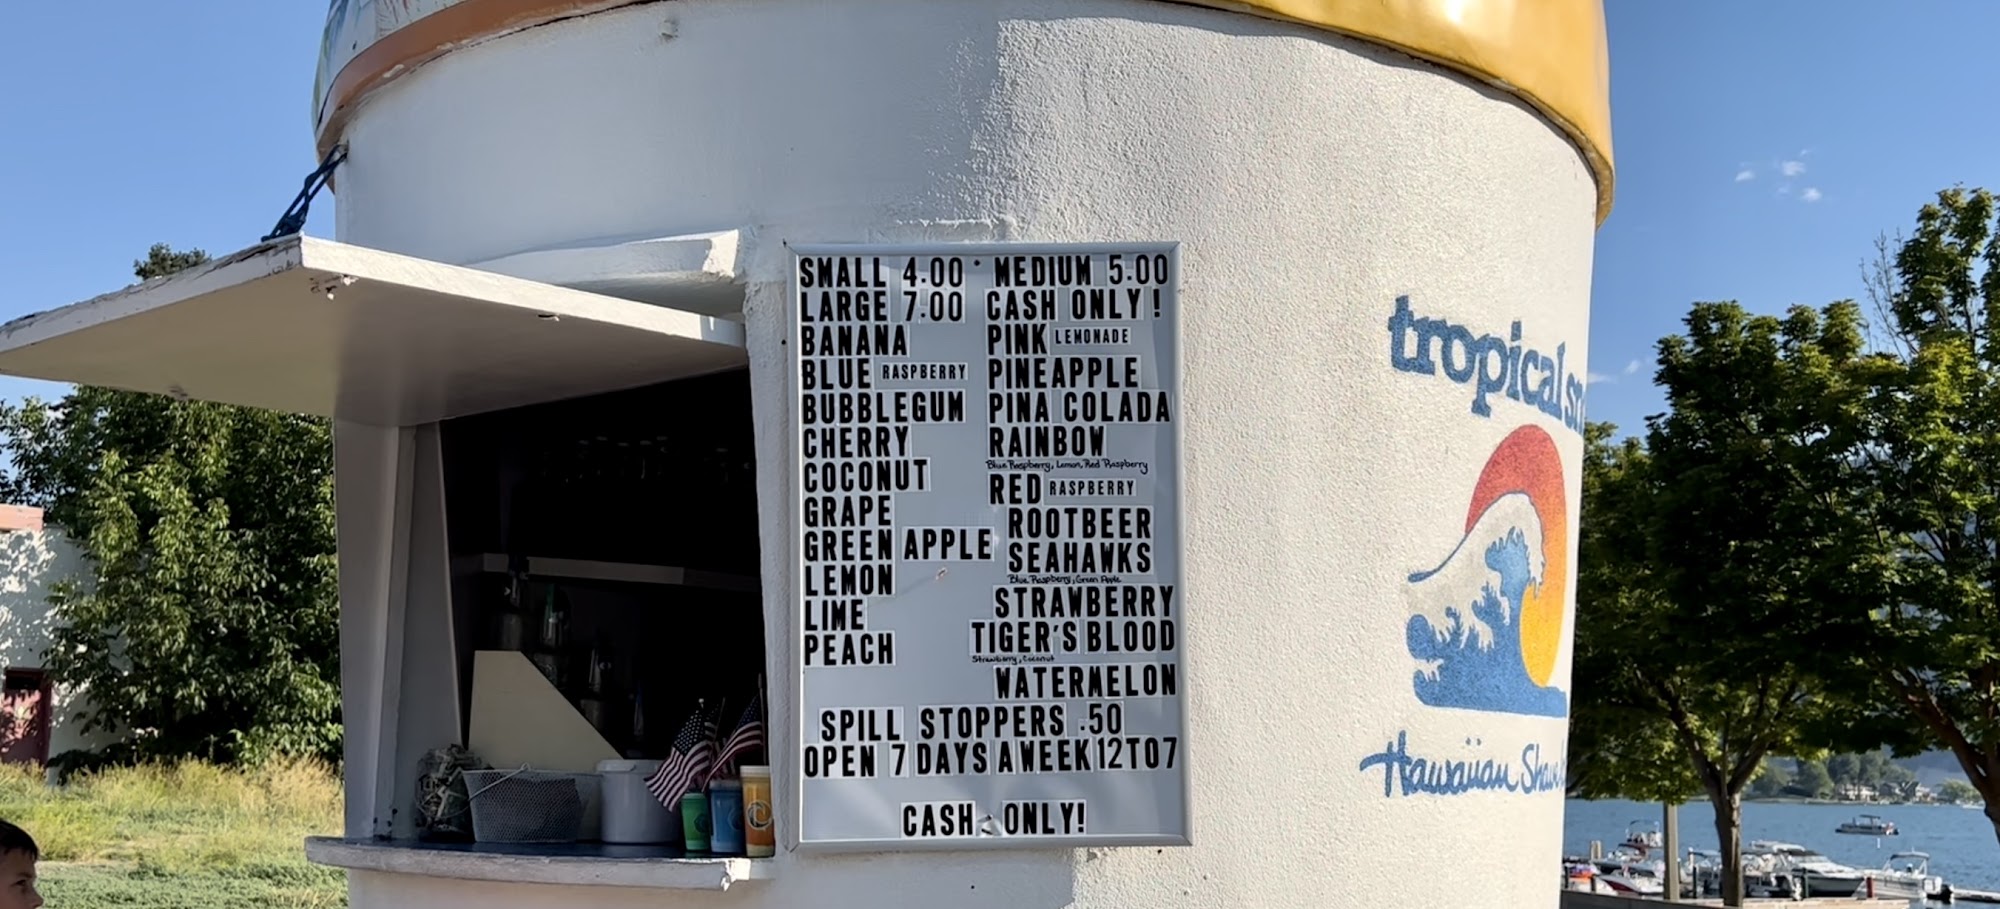 SMALL 4.00 • MEDIUM 5.00
LARGE 7.00 CASH ONLY!
BANANA
BLUE RASPBERRY
BUBBLEGUM
CHERRY
COCONUT
GRAPE
GREEN APPLE
LEMON
LIME
PEACH
PINK LEMONADE
PINEAPPLE
PINA COLADA
RAINBOW
Blue Raspberry, Lemon, Red Raspberry
RED RASPBERRY
ROOTBEER
SEAHAWKS
Blue Raspberry, Green Apple
STRAWBERRY
TIGER'S BLOOD
Strawberry, Coconut
WATERMELON
SPILL STOPPERS .50
OPEN 7 DAYS A WEEK 12 TO 7
CASH ONLY!
tropical
Hawaiian